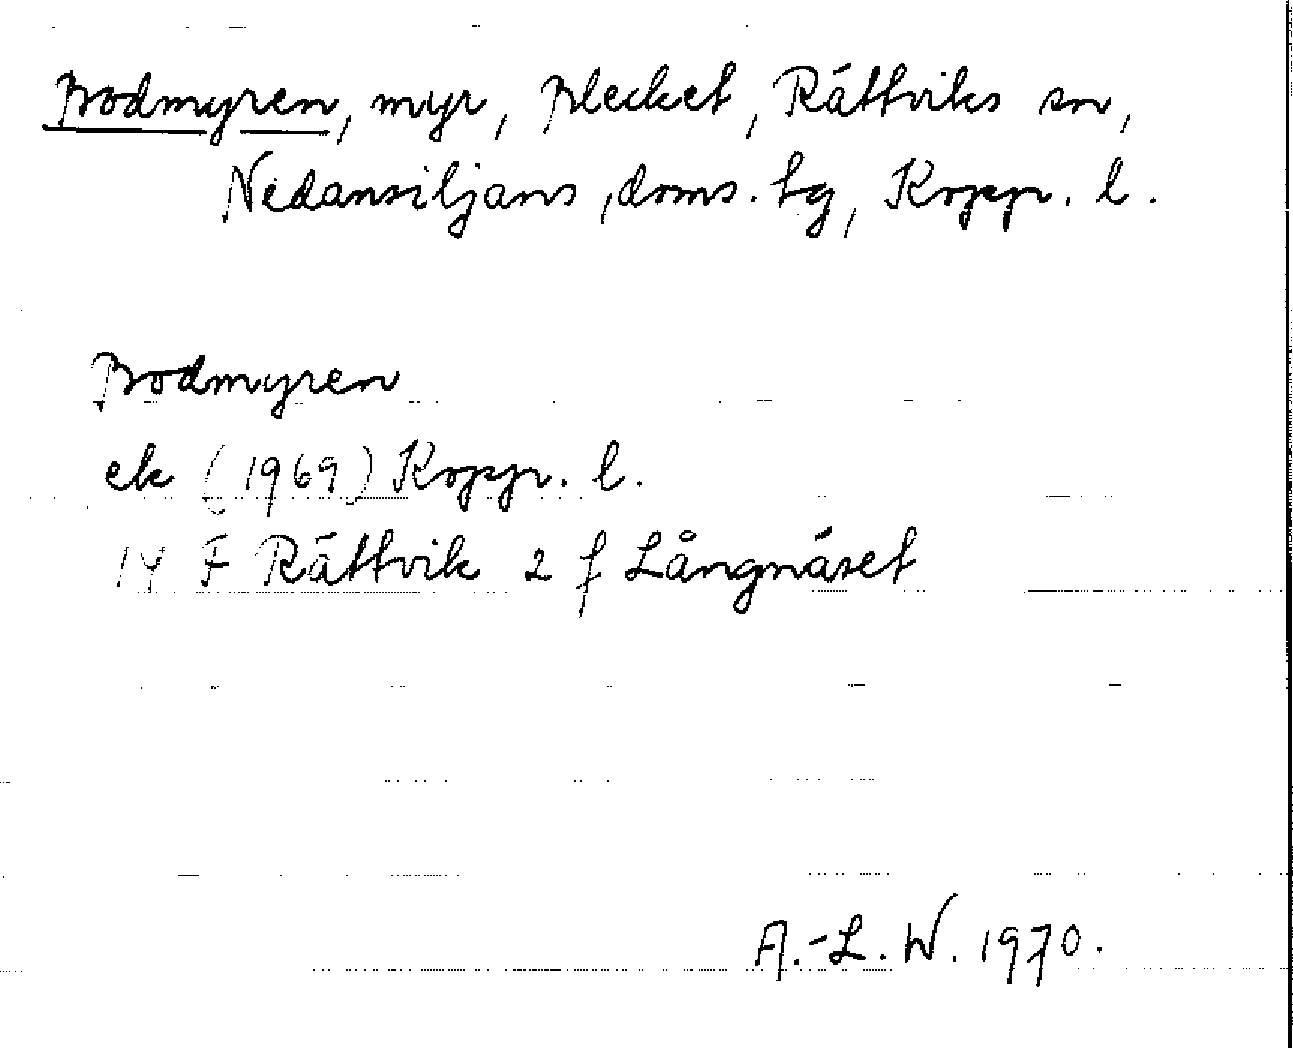 Bodmyren, myr, Blecket, Rättviks sn,
Nedansiljans, doms. tg, Kopp. l.
Bodmyren
ek (1969) Kopp. l.
14 F Rättvik 2 f Långnäset
A.-L. W. 1970.